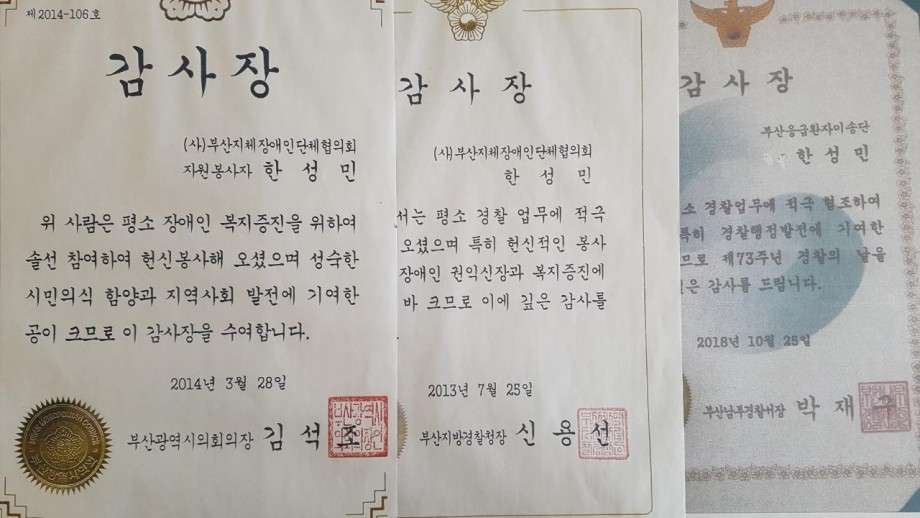 제 2014-106호
감사장
(사)부산지체장애인단체협의회
자원봉사자 한성민
위 사람은 평소 장애인 복지증진을 위하여
솔선 참여하여 헌신봉사해 오셨으며 성숙한
시민의식 함양과 지역사회 발전에 기여한
공이 크므로 이 감사장을 수여합니다.
2014년 3월 28일
부산광역시의회의장 김석조
감사장
(사)부산지체장애인단체협의회
한성민
서는 평소 경찰 업무에 적극
오셨으며 특히 헌신적인 봉사
장애인 권익신장과 복지증진에
바 크므로 이에 깊은 감사를
2013년 7월 25일
부산지방경찰청장 신용선
감사장
부산응급환자이송단
한성민
소 경찰업무에 적극 협조하여
특히 경찰행정발전에 기여한
므로 제73주년 경찰의 날을
은 감사를 드립니다.
2018년 10월 25일
부산남부경찰서장 박재구